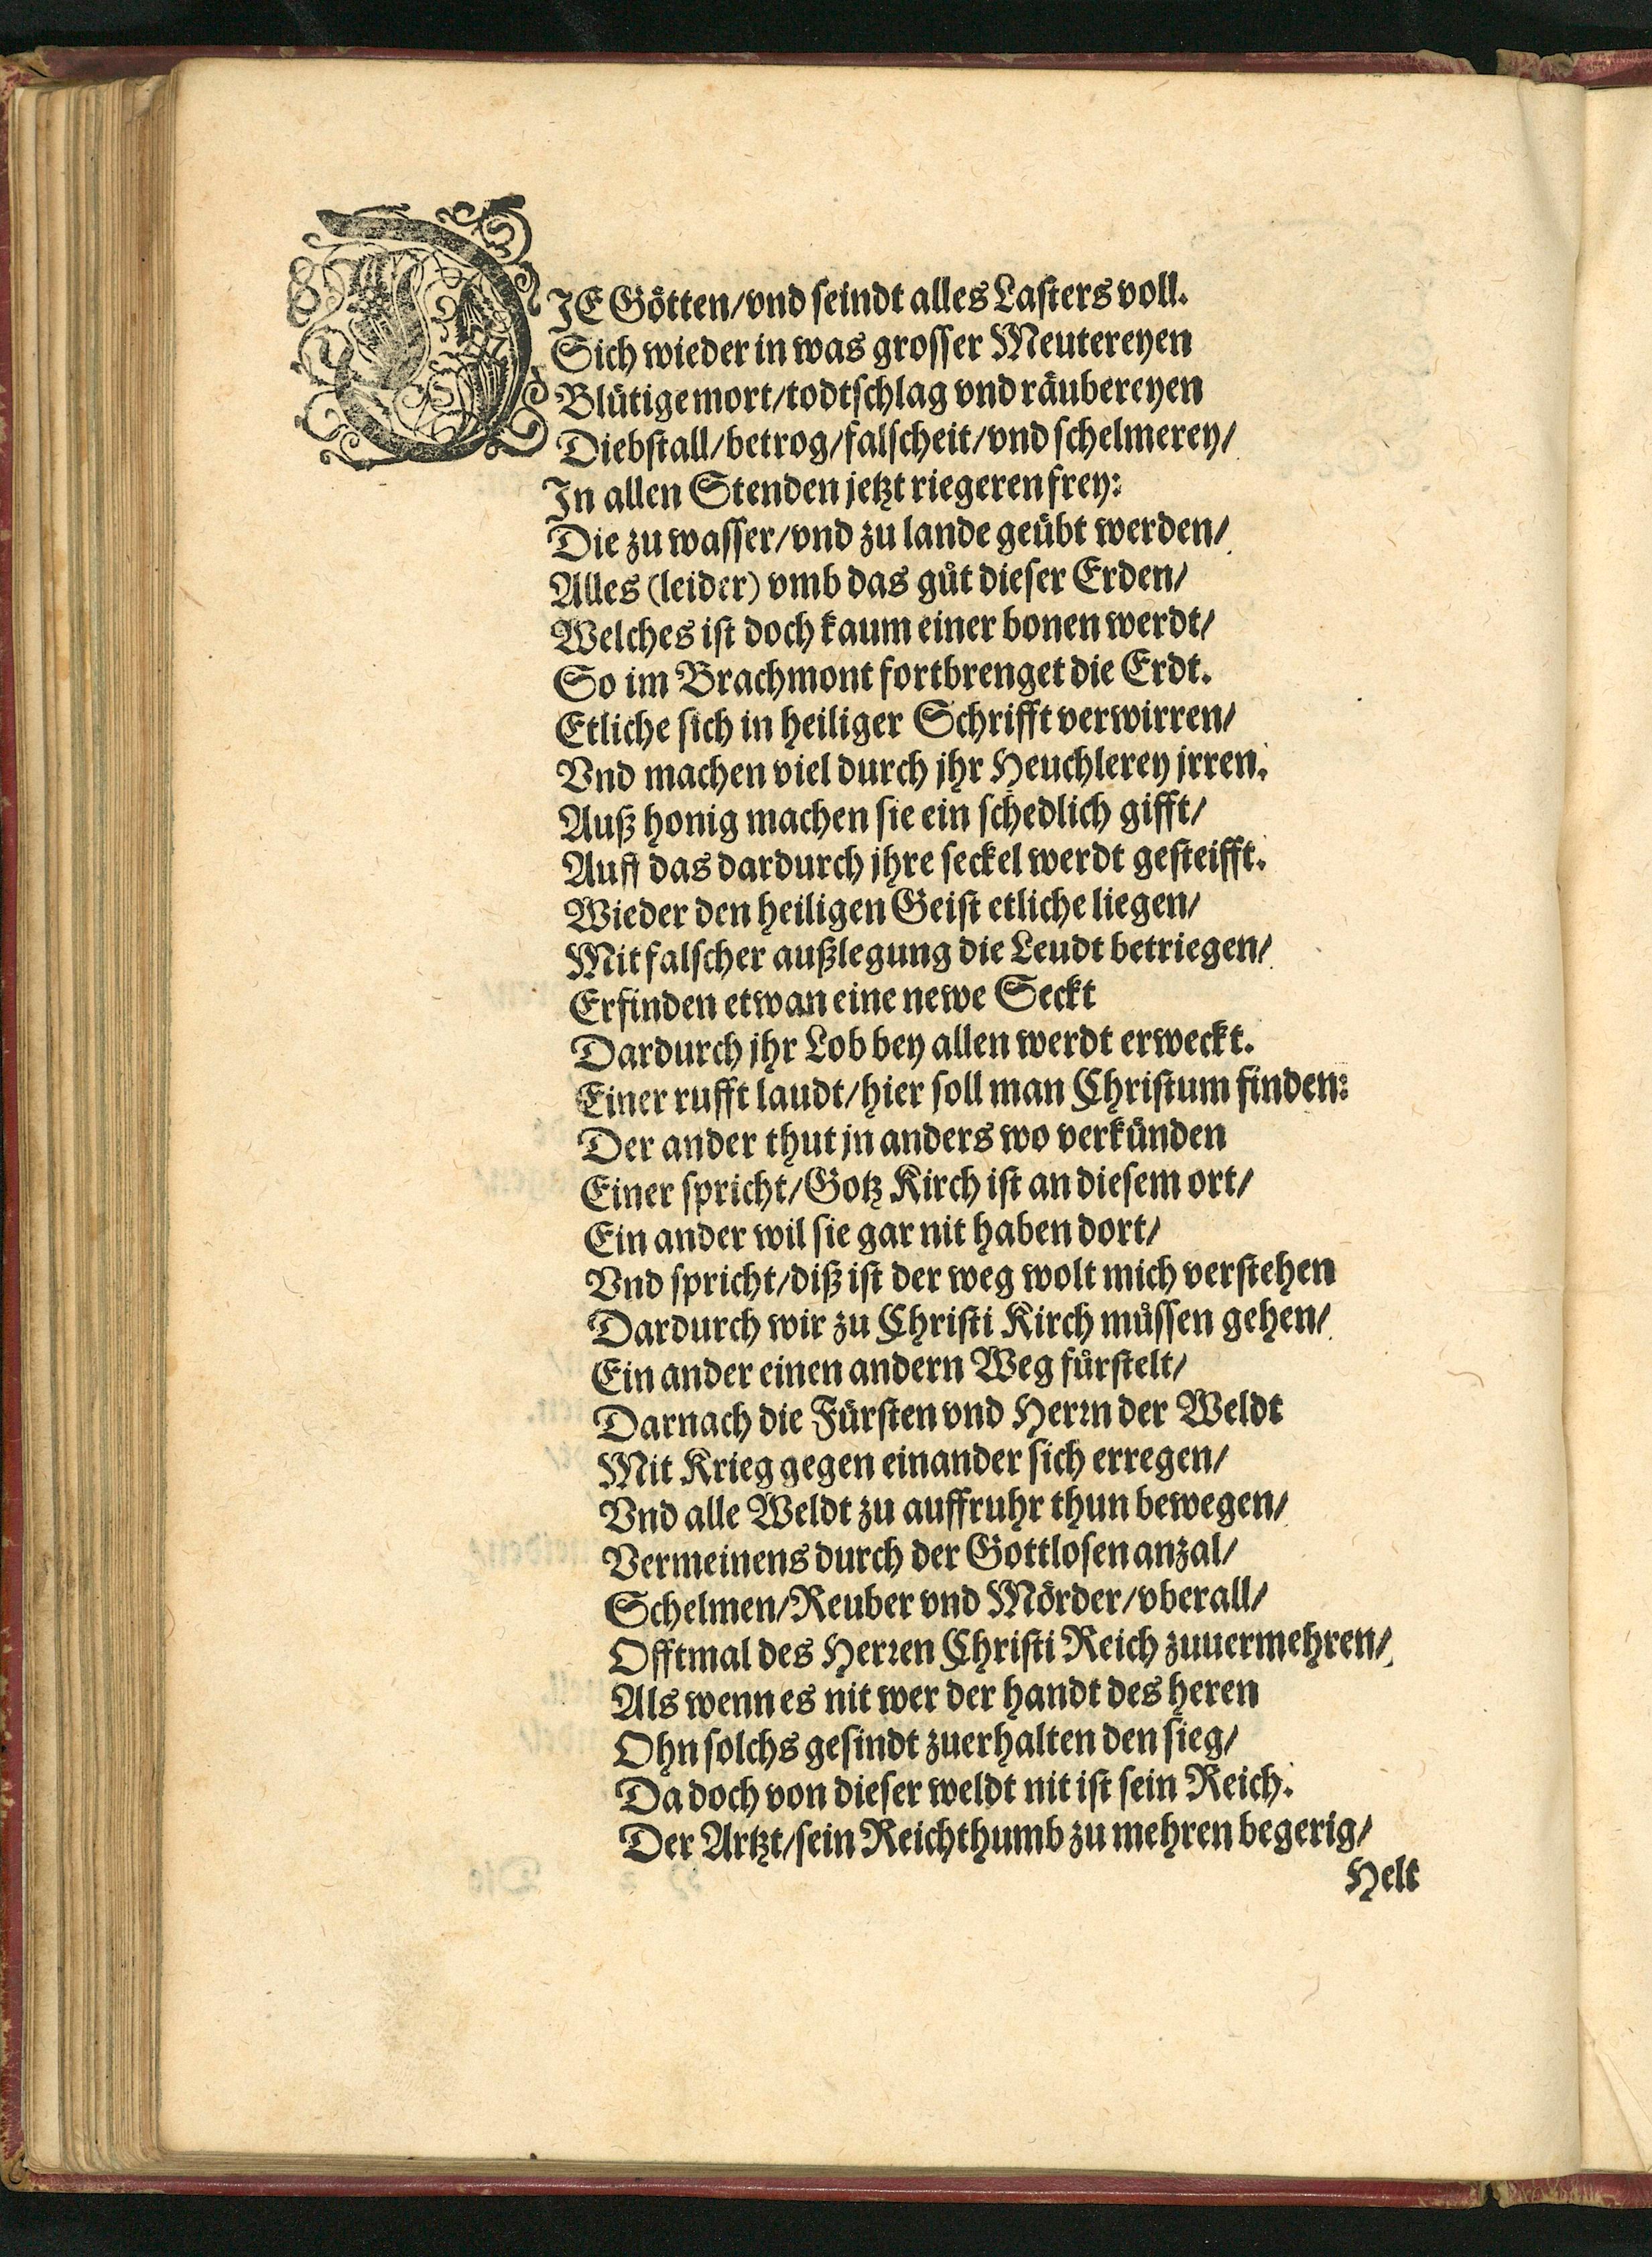 DIE Götten/vnd seindt alles Lasters voll.
Sich wieder in was grosser Meutereyen
Blütige mort/todtschlag vnd räubereyen
Diebstall/betrog/falscheit/vnd schelmerey/
In allen Stenden jetzt riegeren frey:
Die zu wasser/vnd zu lande geübt werden/
Alles (leider) vmb das gůt dieser Erden/
Welches ist doch kaum einer bonen werdt/
So im Brachmont fortbrenget die Erdt.
Etliche sich in heiliger Schrifft verwirren/
Vnd machen viel durch jhr Heuchlerey jrren.
Auß honig machen sie ein schedlich gifft/
Auff das dardurch jhre seckel werdt gesteifft.
Wieder den heiligen Geist etliche liegen/
Mit falscher außlegung die Leudt betriegen/
Erfinden etwan eine newe Seckt
Dardurch jhr Lob bey allen werdt erweckt.
Einer rufft laudt/hier soll man Christum finden:
Der ander thut jn anders wo verkünden
Einer spricht/Gotz Kirch ist an diesem ort/
Ein ander wil sie gar nit haben dort/
Vnd spricht/diß ist der weg wolt mich verstehen
Dardurch wir zu Christi Kirch müssen gehen/
Ein ander einen andern Weg fürstelt/
Darnach die Fürsten vnd Herrn der Weldt
Mit Krieg gegen einander sich erregen/
Vnd alle Weldt zu auffruhr thun bewegen/
Vermeinens durch der Gottlosen anzal/
Schelmen/Reuber vnd Mörder/vberall/
Offtmal des Herren Christi Reich zuuermehren/
Als wenn es nit wer der handt des heren
Ohn solchs gesindt zuerhalten den sieg/
Da doch von dieser weldt nit ist sein Reich.
Der Artzt/sein Reichthumb zu mehren begerig/
Helt